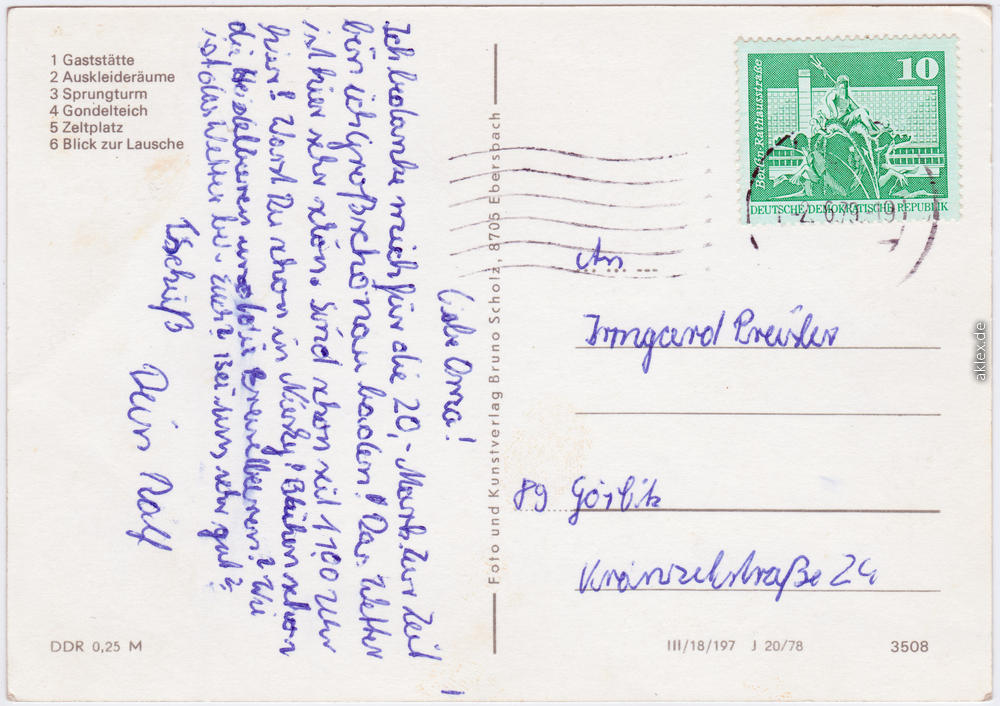 1 Gaststätte
2 Auskleideräume
3 Sprungturm
4 Gondelteich
5 Zeltplatz
6 Blick zur Lausche
Liebe Oma!
Ich bedanke mich für die 20,- Mark. Zur Zeit
bin ich Großschönau baden! Das Wetter
ist hier sehr schön. Sind schon seit 1100 Uhr
hier! Warst Du schon in Niesky? Blühen schon
die Heidelbeeren und die Preiselbeeren? Wie
ist das Wetter bei Euch? Bei uns sehr gut?
Tschüß
Dein Ralf
DDR 0,25 M
Foto und Kunstverlag Bruno Scholz, 8705 Ebersbach
10
Berlin, Rathausstraße
DEUTSCHE DEMOKRATISCHE REPUBLIK
2.6.79.19
An
Irmgard Preisler
89 Görlitz
Kränzelstraße 24
III/18/197 J 20/78
3508
aklex.de